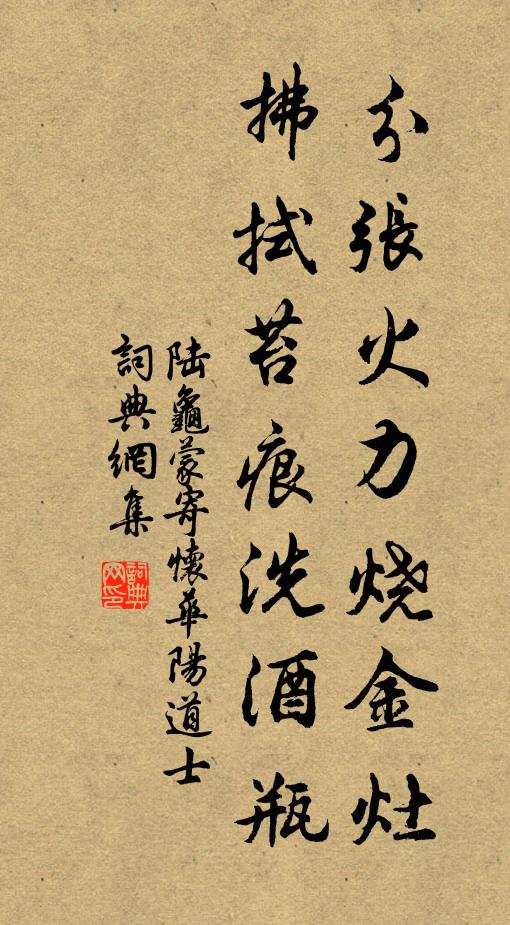 分張火力烧金灶
拂拭苔痕洗酒瓶
陆龜蒙寄懷華陽道士
詞典網集
詞典网印